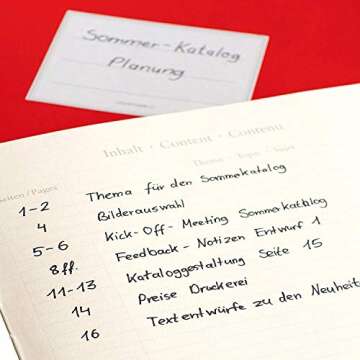 Sommer-Katalog
Planung
Inhalt · Content · Contenu
Thema / Topic / Sujet
eiten / Pages
1-2 Thema für den Sommekatalog
4 Bilderauswahl
5-6 Kick-Off-Meeting Sommerkatalog
8ff. Feedback-Notizen Entwurf 1
11-13 Kataloggestaltung Seite 15
14 Preise Druckerei
16 Textentwürfe zu den Neuheite